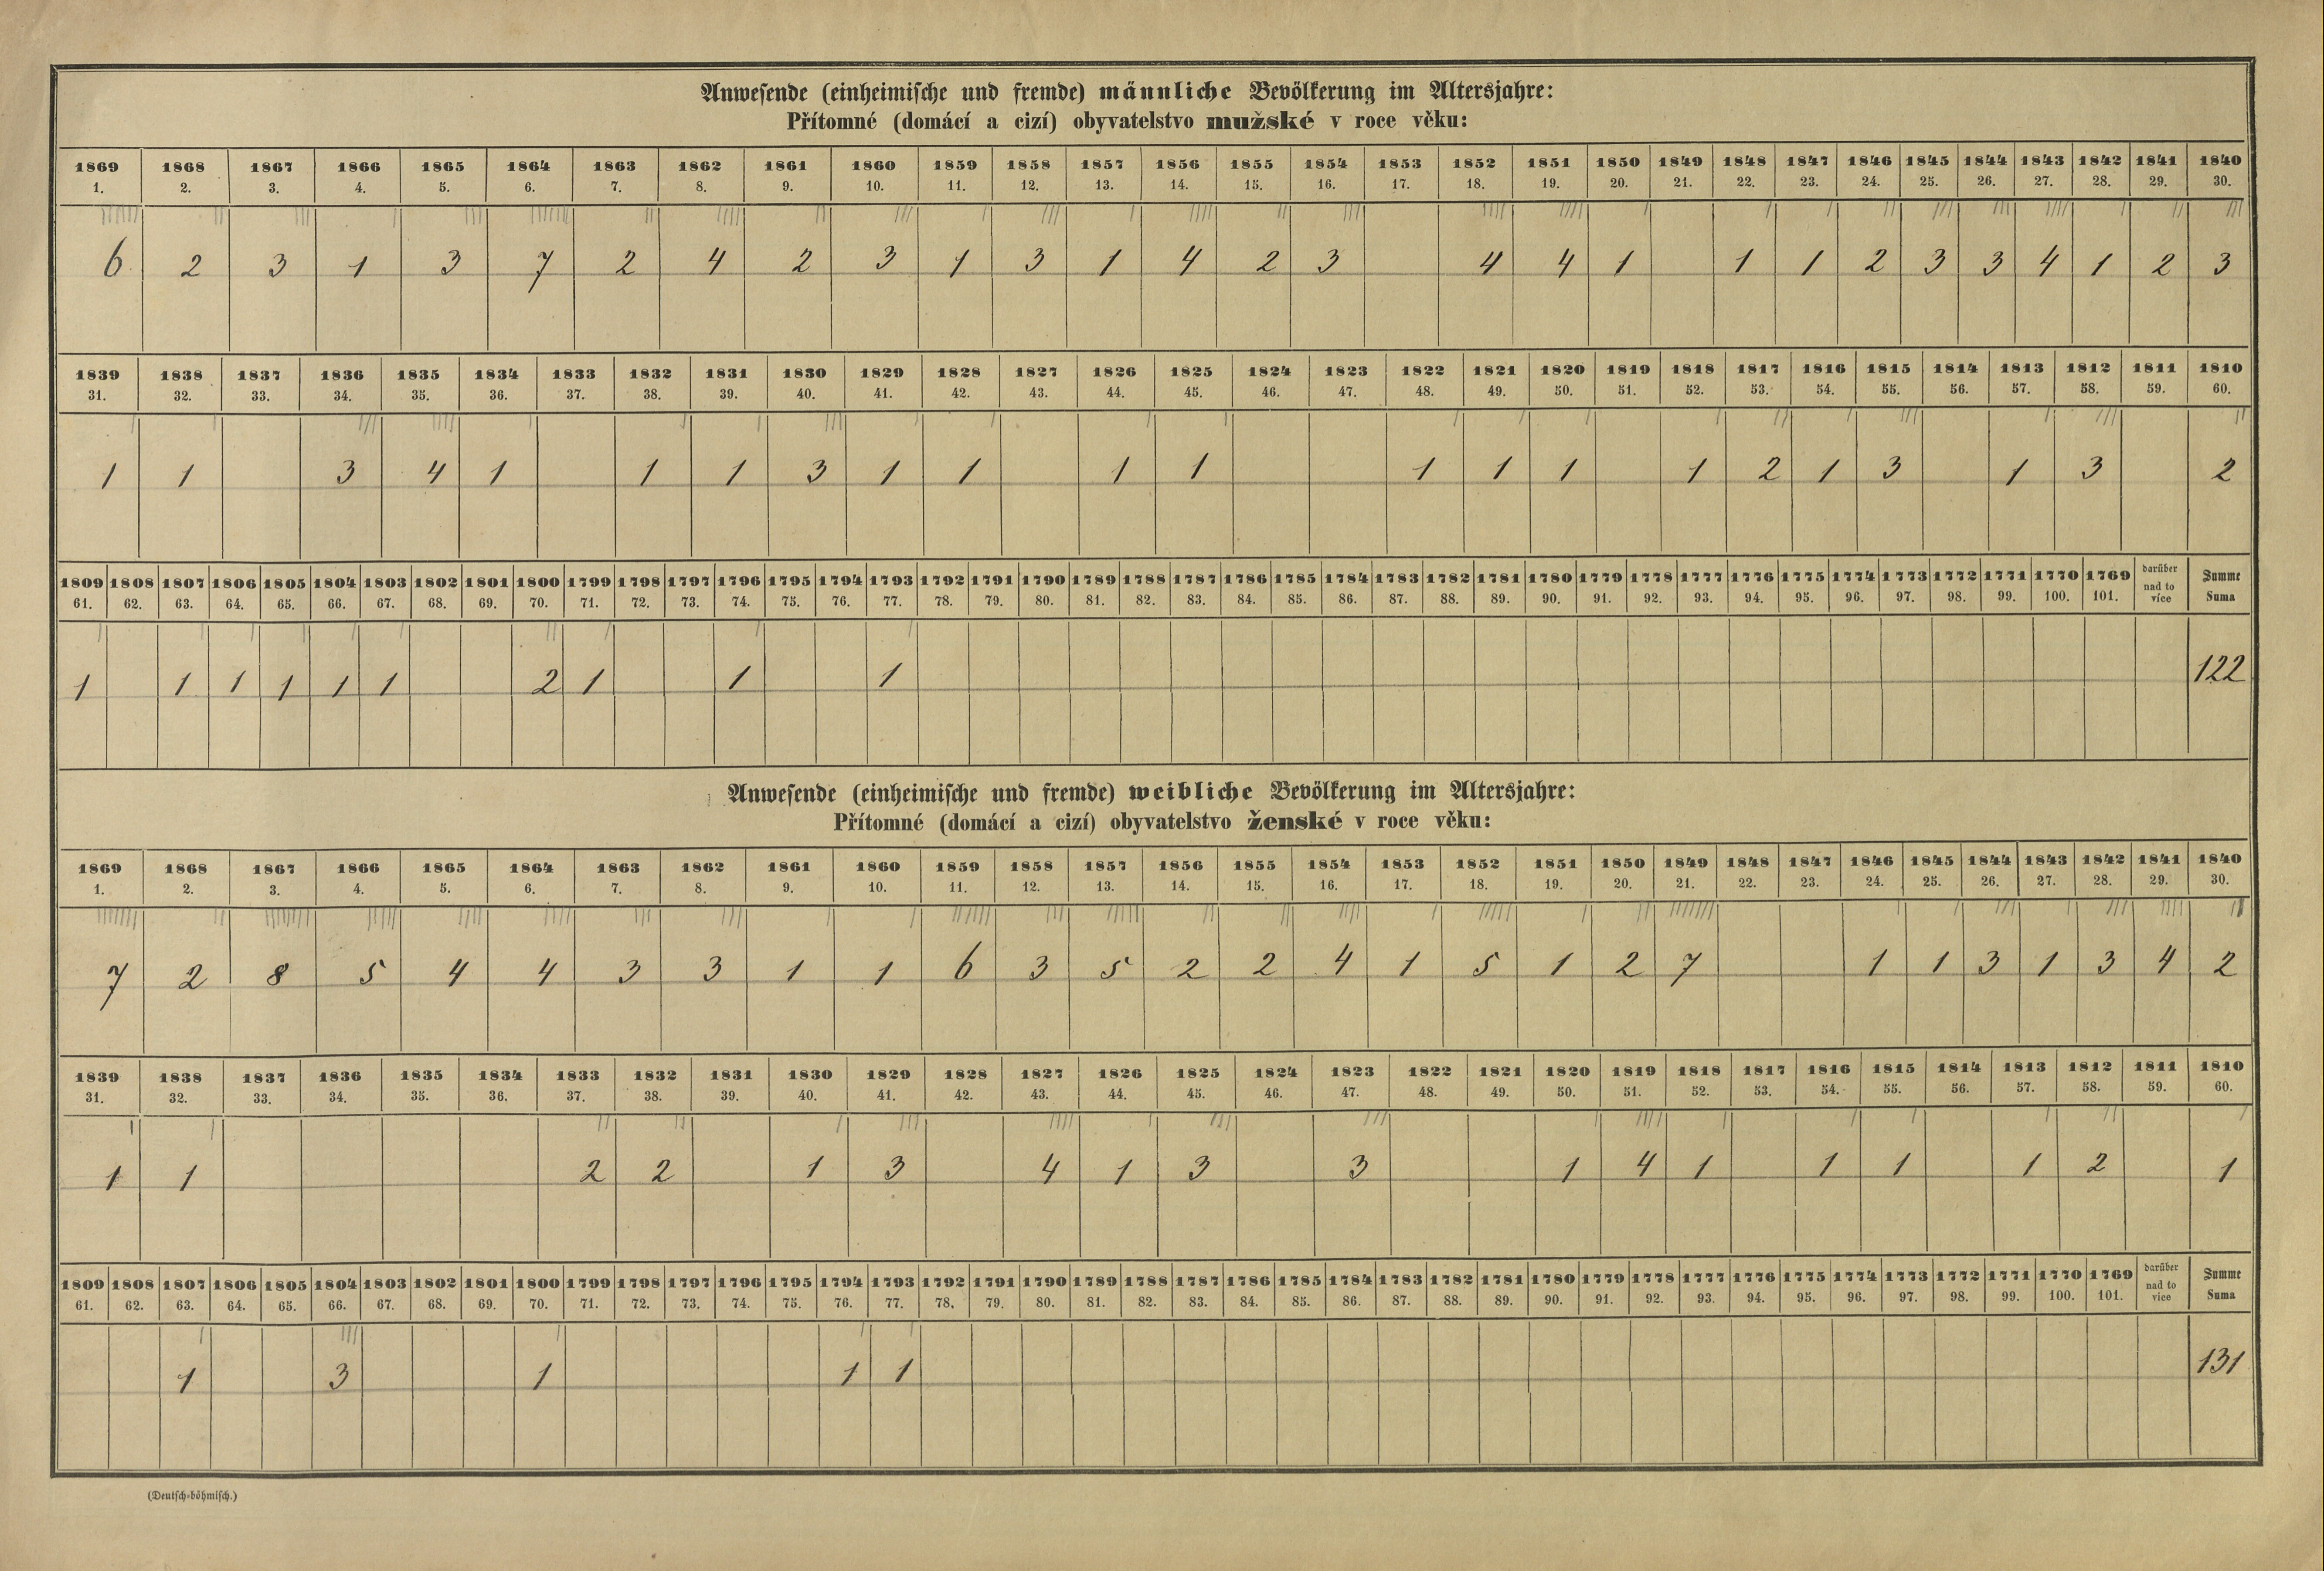 Anwesende (einheimische und fremde) männliche Bevölkerung im Altersjahre:
Přítomné (domácí a cizí) obyvatelstvo mužské v roce věku:
1869 1868 1867 1866 1865 1864 1863 1862 1861 1860 1859 1858 1857 1856 1855 1854 1853 1852 1851 1850 1849 1848 1847 1846 1845 1844 1843 1842 1841 1840
1. 2. 3. 4. 5. 6. 7. 8. 9. 10. 11. 12. 13. 14. 15. 16. 17. 18. 19. 20. 21. 22. 23. 24. 25. 26. 27. 28. 29. 30.
6 2 3 1 3 7 2 4 2 3 1 3 1 4 2 3 4 4 1 1 1 2 3 3 4 1 2 3
1839 1838 1837 1836 1835 1834 1833 1832 1831 1830 1829 1828 1827 1826 1825 1824 1823 1822 1821 1820 1819 1818 1817 1816 1815 1814 1813 1812 1811 1810
31. 32. 33. 34. 35. 36. 37. 38. 39. 40. 41. 42. 43. 44. 45. 46. 47. 48. 49. 50. 51. 52. 53. 54. 55. 56. 57. 58. 59. 60.
1 1 3 4 1 1 1 3 1 1 1 1 1 1 1 1 2 1 3 1 3 2
1809 1808 1807 1806 1805 1804 1803 1802 1801 1800 1799 1798 1797 1796 1795 1794 1793 1792 1791 1790 1789 1788 1787 1786 1785 1784 1783 1782 1781 1780 1779 1778 1777 1776 1775 1774 1773 1772 1771 1770 1769 darüber nad to více Summe
61. 62. 63. 64. 65. 66. 67. 68. 69. 70. 71. 72. 73. 74. 75. 76. 77. 78. 79. 80. 81. 82. 83. 84. 85. 86. 87. 88. 89. 90. 91. 92. 93. 94. 95. 96. 97. 98. 99. 100. 101. Suma
1 1 1 1 1 1 2 1 1 1 122
Anwesende (einheimische und fremde) weibliche Bevölkerung im Altersjahre:
Přítomné (domácí a cizí) obyvatelstvo ženské v roce věku:
1869 1868 1867 1866 1865 1864 1863 1862 1861 1860 1859 1858 1857 1856 1855 1854 1853 1852 1851 1850 1849 1848 1847 1846 1845 1844 1843 1842 1841 1840
1. 2. 3. 4. 5. 6. 7. 8. 9. 10. 11. 12. 13. 14. 15. 16. 17. 18. 19. 20. 21. 22. 23. 24. 25. 26. 27. 28. 29. 30.
7 2 8 5 4 4 3 3 1 1 6 3 5 2 2 4 1 5 1 2 7 1 1 3 1 3 4 2
1839 1838 1837 1836 1835 1834 1833 1832 1831 1830 1829 1828 1827 1826 1825 1824 1823 1822 1821 1820 1819 1818 1817 1816 1815 1814 1813 1812 1811 1810
31. 32. 33. 34. 35. 36. 37. 38. 39. 40. 41. 42. 43. 44. 45. 46. 47. 48. 49. 50. 51. 52. 53. 54. 55. 56. 57. 58. 59. 60.
1 1 2 2 1 3 4 1 3 3 1 4 1 1 1 1 2 1
1809 1808 1807 1806 1805 1804 1803 1802 1801 1800 1799 1798 1797 1796 1795 1794 1793 1792 1791 1790 1789 1788 1787 1786 1785 1784 1783 1782 1781 1780 1779 1778 1777 1776 1775 1774 1773 1772 1771 1770 1769 darüber nad to více Summe
61. 62. 63. 64. 65. 66. 67. 68. 69. 70. 71. 72. 73. 74. 75. 76. 77. 78. 79. 80. 81. 82. 83. 84. 85. 86. 87. 88. 89. 90. 91. 92. 93. 94. 95. 96. 97. 98. 99. 100. 101. Suma
1 3 1 1 1 131
(Deutsch-böhmisch.)